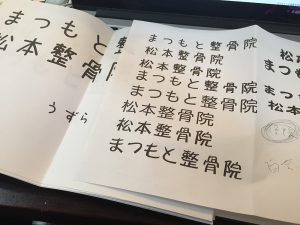 まつもと
松本整骨院
うずら
まつもと整骨院
松本整骨院
松本整骨院
まつもと整骨院
まつもと整骨院
松本整骨院
松本整骨院
まつもと整骨院
松
まつ
まつ
松本